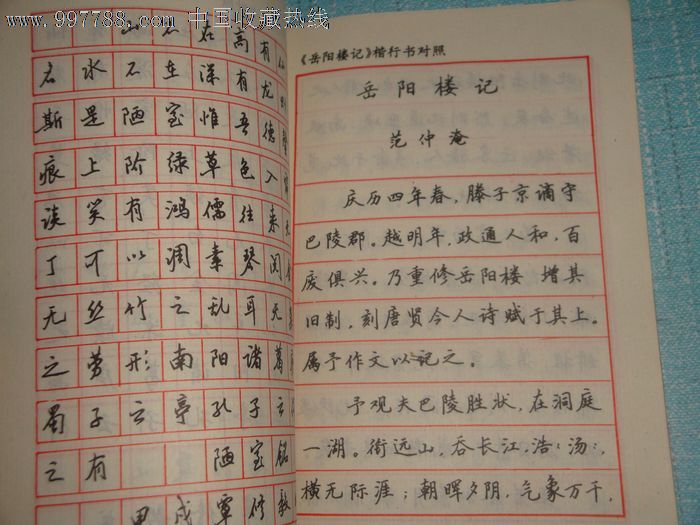 www.997788.com 中国收藏热线
山 不 在 高 有
名 水 不 在 深 有 龙
斯 是 陋 室 惟 吾 德
痕 上 阶 绿 草 色 入
谈 笑 有 鸿 儒 往 来
丁 可 以 调 素 琴 阅
无 丝 竹 之 乱 耳 无
之 劳 形 南 阳 诸 葛
蜀 子 云 亭 孔 子 云
之 有 陋 室 铭
《岳阳楼记》楷行书对照
岳阳楼记
范仲淹
庆历四年春，滕子京谪守
巴陵郡。越明年，政通人和，百
废俱兴。乃重修岳阳楼 增其
旧制，刻唐贤今人诗赋于其上。
属予作文以记之。
予观夫巴陵胜状，在洞庭
一湖。衔远山，吞长江，浩:汤:，
横无际涯；朝晖夕阴，气象万千，